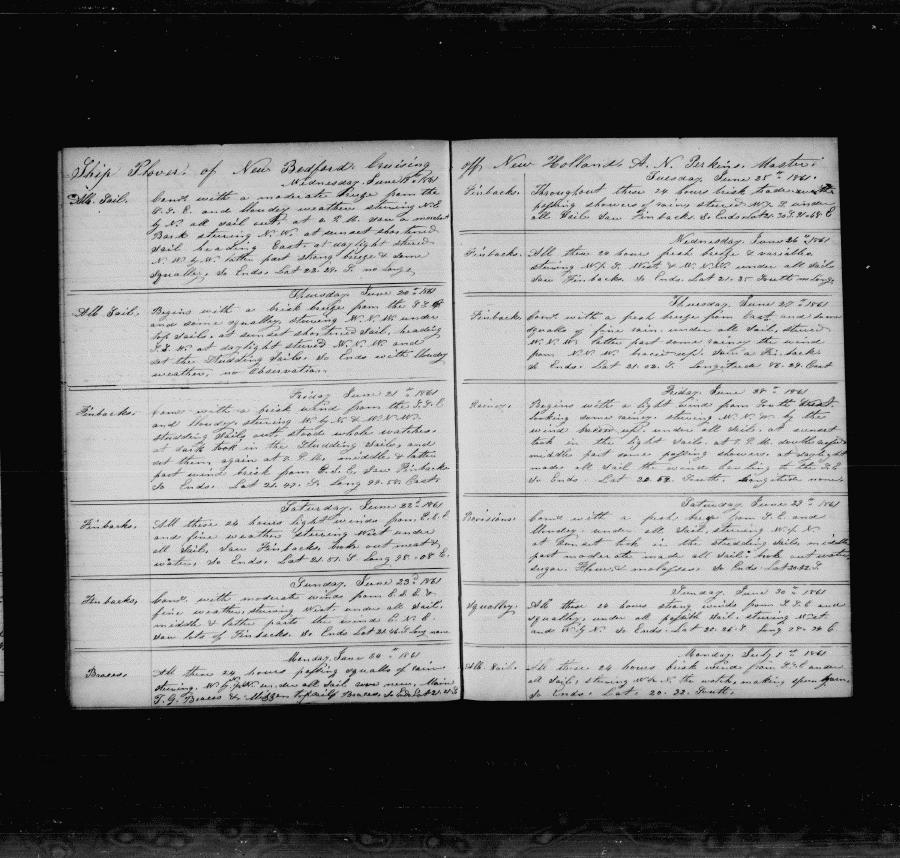 Ship Plover of New Bedford Cruising
Wednesday June 19th 1861
Mk. Sail. Comd with a moderate breeze from the
S.S.E. and cloudy weather steering N.E
by N. all sail out. at 2 P.M. saw a merchant
Bark steering N.W. at sunset shortened
sail heading East. at daylight stered
N.W. by W. latter part strong breeze & some
squally, So Ends. Lat 22.29. S. no Long,
Thursday June 20th 1861
Mk Sail. Begins with a brisk breeze from the
and some squally, steering W.N.W. under
top sails, at sunset shortened sail, heading
S.S.W. at daylight stered W.N.W. and
set the studding sails. So Ends with Cloudy
weather, no Observation.
Friday June 21st 1861
Finbacks. Comd with a brisk wind from the S.S.E
and cloudy, steering W. by N. & W.N.W.
studding sails out, stood whole watches.
at dark took in the Studding sails, and
set them again at P.M. middle & latter
part wind brisk from E.S.E, Saw Finbacks
So Ends. Lat 21.47. S. Long 99.58. East.
Saturday June 22d 1861
Finbacks. All these 24 hours light winds from E.S.E
and fine weather steering West under
all sail, Saw Finbacks, broke out meat &
water, So Ends. Lat 21.51. S. Long 98.08 E.
Sunday June 23d 1861
Finbacks, Comd with moderate winds from E.S.E. &
fine weather, steering West. under all sail.
middle & latter parts the wind E.N.E.
saw lots of Finbacks. So Ends Lat 21.46 S. Long none
Monday June 24th 1861
Braces. All these 24 hours passing squalls of rain
steering W. by N. under all sail rove new, Main
T.G. Braces & Mizzen topsail Braces, So Ends Lat 21.21 S
off New Holland. A. N. Perkins. Master.
Tuesday June 25th 1861.
Finbacks. Throughout these 24 hours brisk trades
passing showers of rain stered under
all sail. Saw Finbacks. So Ends Lat 21.30 S. 91.68 E
Wednesday June 26th 1861
Finbacks. All these 24 hours fresh breeze & variable
steering West & W.N.W. under all sail
saw Finbacks. So Ends. Lat 21.35 South no Long.
Thursday June 27th 1861
Finbacks Comd with a fresh breeze from East and some
squalls of fine rain under all sail, stered
W.N.W. latter part some rainy the wind
from N.N.W. braced up. saw a Finback
So Ends. Lat 21.02. S. Longitude 86.29. East
Friday June 28th 1861
Rainy. Begins with a light wind from South
looking some rainy. steering W.N.W. by the
wind braced up under all sail. at sunset
took in the light sails. at P.M. double reefed
middle part some passing showers, at daylight
made all sail the wind hauling to the S.E
So Ends. Lat 20.52. South. Longitude none
Saturday June 29th 1861
Provisions. Comd with a fresh breeze from S.E. and
Cloudy under all sail, steering
at sunset took in the studding sails, middle
part moderate made all sail. broke out water
sugar, Flour, & molasses. So Ends Lat 20.42. S.
Sunday June 30th 1861
Squally. All these 24 hours strong winds from S.S.E and
squally, under all possible sail. steering West
and W. by N. So Ends. Lat 20.26. S. Long 79.24 E
Monday July 1st 1861
Mk. Sail. All these 24 hours brisk winds from S.S.E under
all sail, steering the watch, making spun yarn,
So Ends. Lat. 20.32. South.